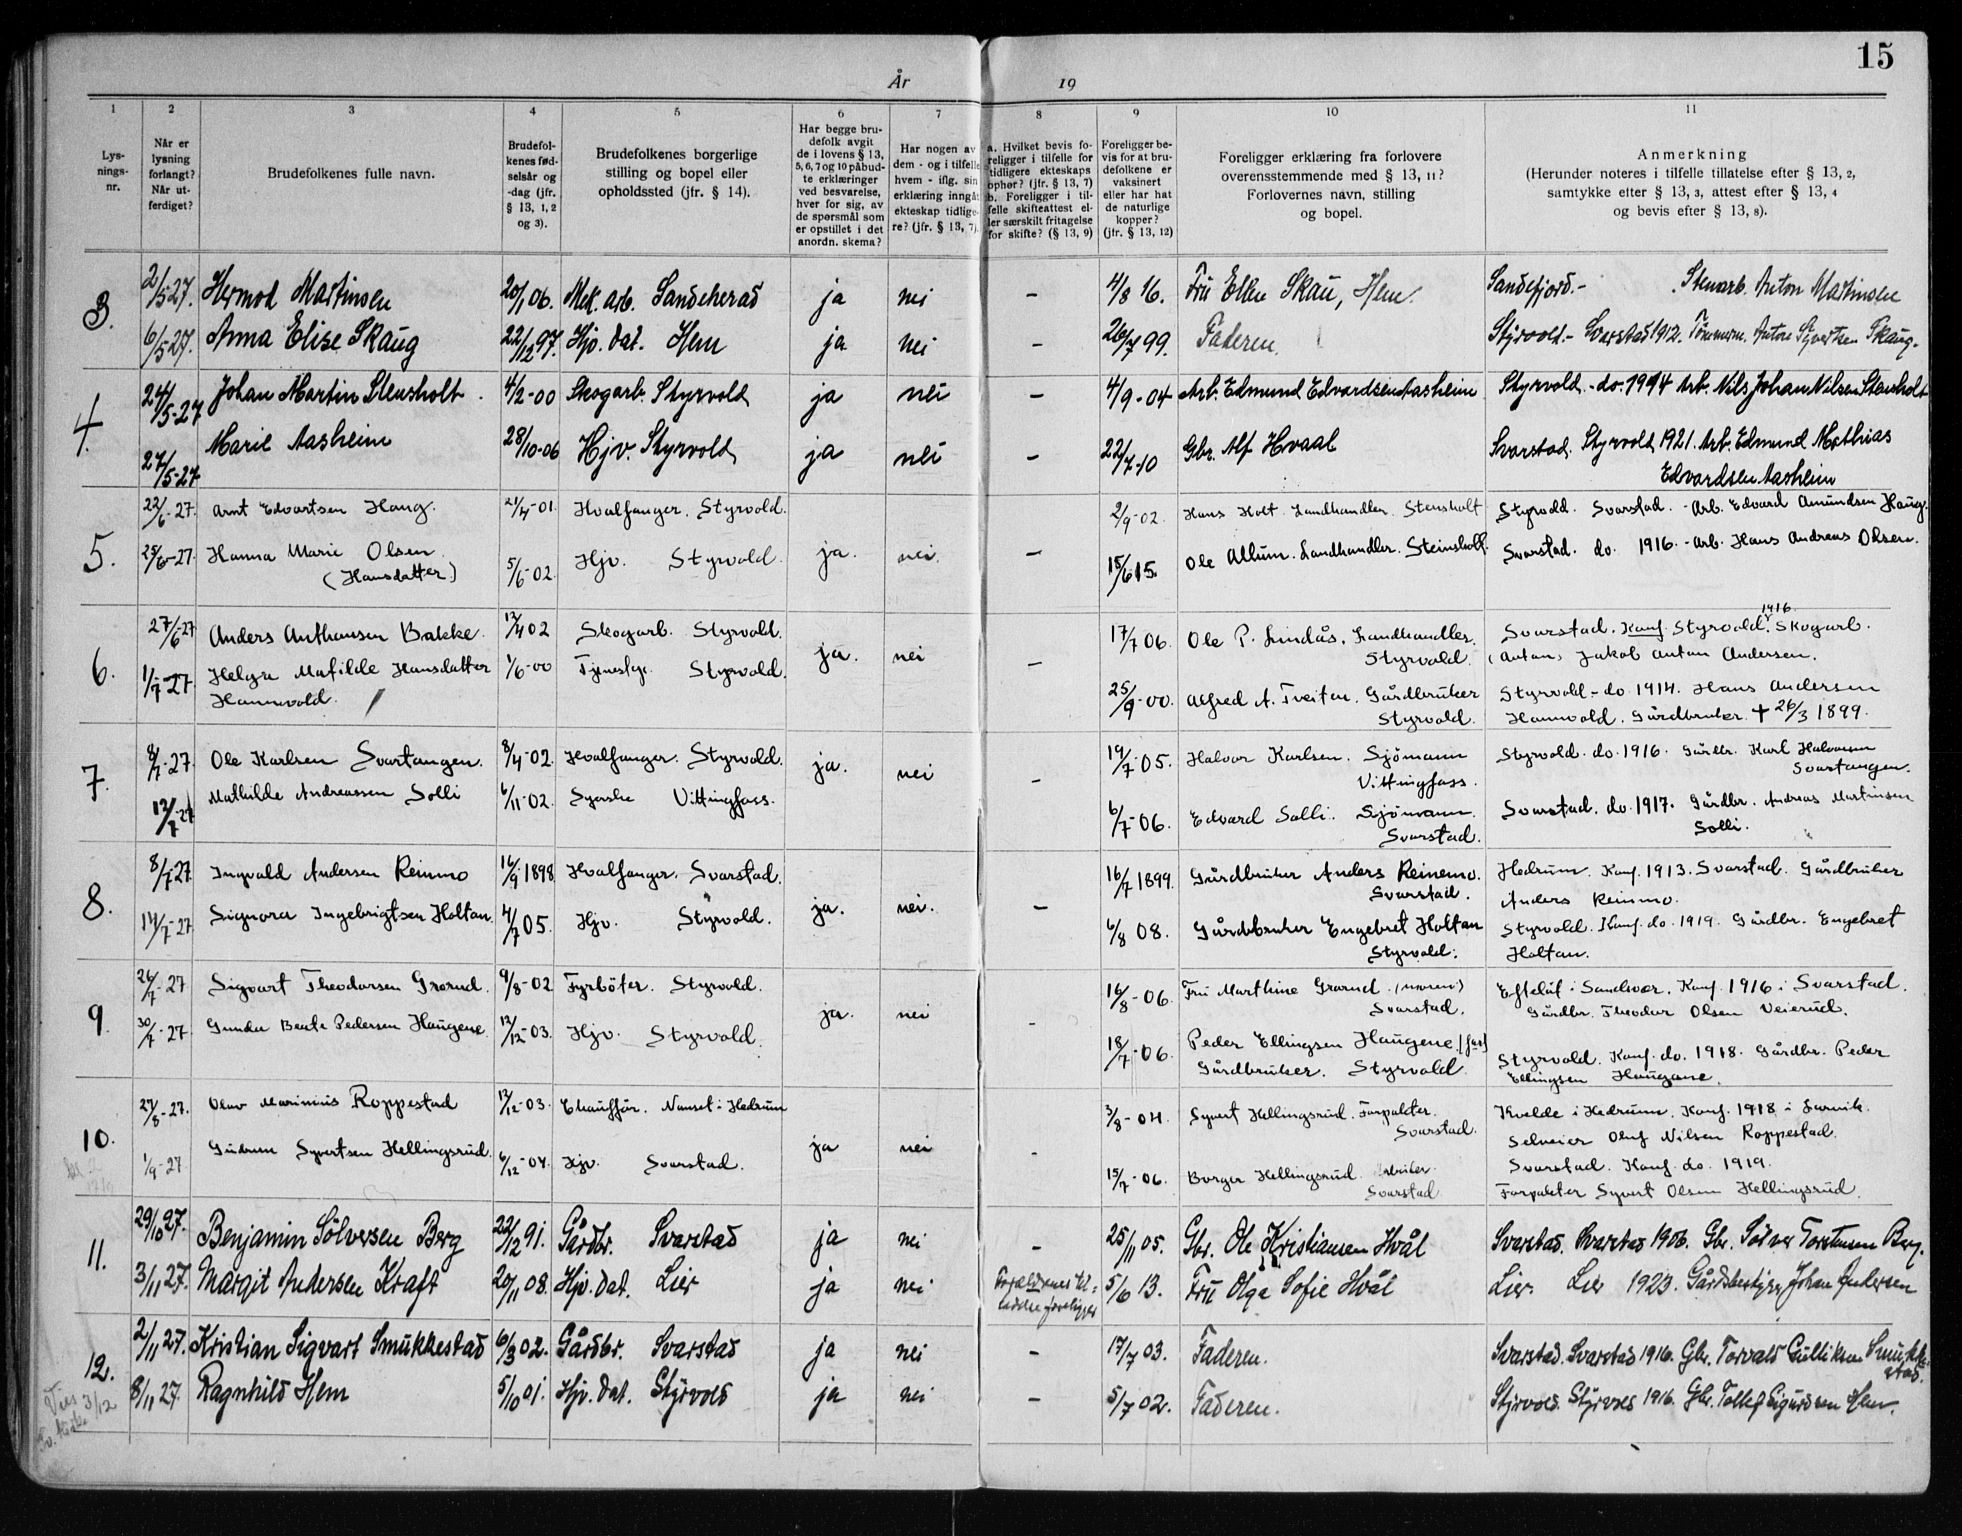 15
År 19
1 2 3 4 5 6 7 8 9 10 11
Lys-
nings-
nr.
Når er
lysning
forlangt?
Når ut-
ferdiget?
Brudefolkenes fulle navn.
Brudefol-
kenes fød-
selsår og
-dag (jfr.
§ 13, 1, 2
og 3).
Brudefolkenes borgerlige
stilling og bopel eller
opholdssted (jfr. § 14).
Har begge bru-
defolk avgit
de i lovens § 13,
5, 6, 7 og 10 påbud-
te erklæringer
ved besvarelse,
hver for sig, av
de spørsmål som
er opstillet i det
anordn. skema?
Har nogen av
dem - og i tilfelle
hvem - iflg. sin
erklæring inngåt
ekteskap tidlige-
re? (jfr. § 13, 7).
a. Hvilket bevis fo-
religger i tilfelle for
tidligere ekteskaps
ophør? (jfr. § 13, 7)
b. Foreligger i til-
felle skifteattest el-
ler særskilt fritagelse
for skifte? (§ 13, 9)
Foreligger be-
vis for at bru-
defolkene er
vaksinert
eller har hat
de naturlige
kopper?
(jfr. § 13, 12)
Foreligger erklæring fra forlovere
overensstemmende med § 13, 11?
Forlovernes navn, stilling
og bopel.
Anmerkning
(Herunder noteres i tilfelle tillatelse efter § 13, 2,
samtykke etter § 13, 3, attest efter § 13, 4
og bevis efter § 13, 8).
3. 2/5 27. Hermod Martinsen 20/1 06. Mek. arb. Sandeherad ja nei – 4/8 16. Fru Ellen Skau, Hem. Sandefjord.- Stenarb. Anton Martinsen
6/5 27. Anna Elise Skaug 22/12 97. Hjv. dat. Hem ja nei – 26/7 99. Faderen. Styrvold.- Svarstad 1912. Tømmerm. Anton Syvertsen Skaug.
4. 24/5-27 Johan Martin Stensholt. 4/2-00 Skogarb. Styrvold ja nei – 4/9-04 Arb. Edmund Edvardsen Aasheim Styrvold.-do.-1914 Arb. Nils Johan Nilsen Stensholt
27/5-27 Marie Aasheim 28/10-06 Hjv. Styrvold ja nei – 22/7-10 Gbr. Alf Hvaal Svarstad. Styrvold 1921. Arb. Edmund Mathias
Edvardsen Aasheim
5. 22/6-27. Arnt Edvartsen Haug. 21/4-01. Hvalfanger. Styrvold. 2/9-02. Hans Holt. Landhandler. Stensholt Styrvold. Svarstad. - Arb. Edvard Amundsen Haug.
25/6-27. Hanna Marie Olsen 5/6-02. Hjv. Styrvold. ja. nei. – 15/6 15. Ole Allum. Landhandler. Steinsholt. Svarstad. do. 1916. - Arb. Hans Andreas Olsen.
(Hansdatter)
6. 27/6-27 Anders Anthonsen Bakke. 12/4 02 Skogarb. Styrvold. ja. nei – 17/7 06. Ole P. Lindås, Landhandler. Styrvold. Svarstad. Konf. Styrvold 1916. Skogarb.
(Anton) Jakob Anton Andersen.
1/7-27. Helga Matilde Hansdatter 1/6-00 Tjenestp. Styrvold.
Hannevold. 25/9-00. Alfred A. Tveiten. Gårdbruker Styrvold. Styrvold - do 1914. Hans Andersen
Hannvold. Gårdbruker. † 26/3 1899.
7. 8/7-27. Ole Karlsen Svartangen. 8/4-02. Hvalfanger. Styrvold. ja. nei – 19/7-05. Halvor Karlsen. Sjömann Vittingfoss. Styrvold. do. 1916. Gårdbr. Karl Halvorsen
Svartangen.
12/7-27 Mathilde Andreassen Solli 6/11-02. Syerske Vittingfoss. 6/7-06. Edvard Solli. Sjömann. Svarstad. Svarstad. do. 1917. Gårdbr. Andreas Martinsen
Solli.
8. 8/7-27. Ingvald Andersen Reinmo 16/9 1898. Hvalfanger. Svarstad. 16/7 1899. Gårdbruker Anders Reinemo. Svarstad. Hedrum. Konf. 1913. Svarstad. Gårdbruker
Anders Reinmo.
14/7-27 Signora Ingebrigtsen Holtan. 4/7 05. Hjv. Styrvold. ja. nei. – 6/8 08. Gårdbruker Engebret Holtan Styrvold. Styrvold. Konf. do. 1919. Gårdbr. Engebret
Holtan.
9. 26/7-27 Sigvart Theodorsen Grorud. 9/8-02 Fyrböter. Styrvold. ja. nei – 16/8-06. Fru Marthine Grorud. (moren) Svarstad. Efteløt i Sandsvær. Konf. 1916 i Svarstad.
Gårdbr. Theodor Olsen Veierud.
30/7-27 Gunda Beate Pedersen Haugene. 12/12-03. Hjv. Styrvold. 18/7-06. Peder Ellingsen Haugene. (far)
Gårdbruker. Styrvold. Styrvold. Konf. do. 1918. Gårdbr. Peder
Ellingsen Haugane.
10. 27/8-27. Olav Marinius Roppestad 12/12-03. Chauffør. Nanset i Hedrum 3/8-04. Syvert Hellingsrud. Forpakter. Svarstad. Kvelde i Hedrum. Konf. 1918 i Larvik.
Selveier Oluf Nilsen Roppestad.
1/9-27 Gudrun Syvertsen Hellingsrud. 6/12-04. Hjv. Svarstad. ja nei – 15/7-06. Borger Hellingsrud. Svarstad Svarstad. Konf. do. 1919.
Forpakter Syvert Olsen Hellingsrud.
11. 29/10 27. Benjamin Sölversen Berg 22/12 91. Gårdbr. Svarstad ja nei – 25/11 05. Gbr. Ole Kristiansen Hvål Svarstad. Svarstad 1906. Gbr. Sölver Torstensen Berg.
3/11 27. Margit Andersen Kraft 20/11 08. Hjv. dat. Lier ja nei Forældrenes til-
ladelse foreligger 5/6 13. Fru Olga Sofie Hvål Lier. Lier 1923. Gårdsbestyrer Johan Andersen
12. 2/11 27. Kristian Sigvart Smukkestad 6/3 02. Gårdbr. Svarstad ja nei – 17/7 03. Faderen. Svarstad. Svarstad 1916. Gbr. Torvald Gulliksen Smukke-
stad.
8/11 27. Ragnhild Hem 5/10 01. Hjv. dat. Styrvold ja nei – 5/7 02. Faderen. Styrvold. Styrvold 1916. Gbr. Tollef Sigurdsen Hem.
Vies 3/12